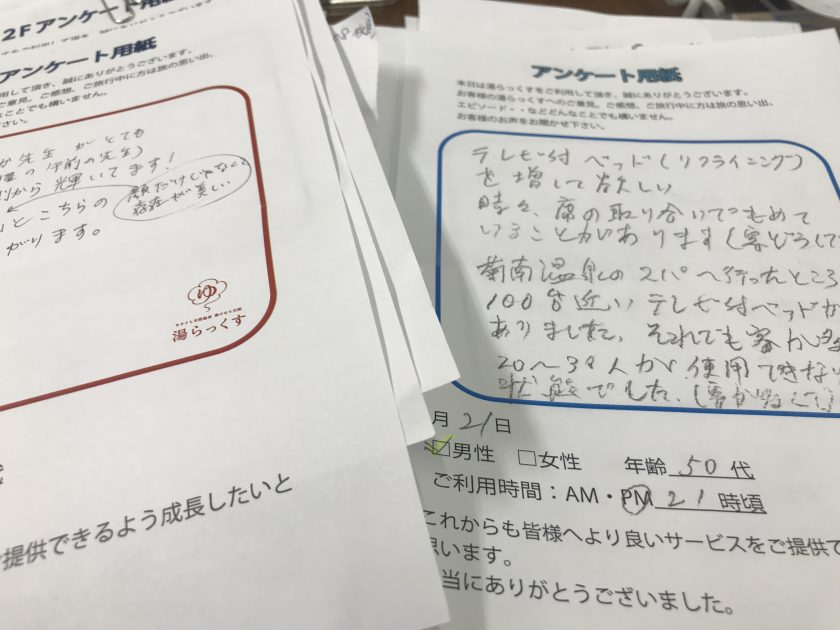 2Fアンケート用紙
アンケート用紙
用して頂き、誠にありがとうございます。
ご意見、ご感想、ご旅行中に方は旅の思い出、
なことでも構いません。
ださい。
先生 がとても
の 午前の先生)
から 輝いてます!
顔だけじゃなくて
存在が美しい
とこちらの
がります。
ゆ
湯らっくす
提供できるよう成長したいと
アンケート用紙
本日は湯らっくすをご利用して頂き、誠にありがとうございます。
お客様の湯らっくすへのご意見、ご感想、ご旅行中に方は旅の思い出、
エピソード・・などどんなことでも構いません。
お客様のお声をお聞かせ下さい。
テレビ付 ベッド(リクライニング)
を増して欲しい
時々、席の取り合いでもめて
いることがあります(客どうしで
菊南温泉のスパへ行ったところ
100台近い テレビ付ベッドが
ありました。それでも客が多
20〜30人が使用できない
状態でした。
月 21日
☑男性 □女性 年齢 50 代
ご利用時間:AM・PM 21 時頃
これからも皆様へより良いサービスをご提供で
思います。
当にありがとうございました。